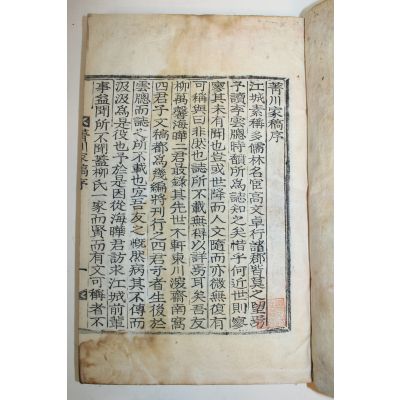 菁川家稿序
江城素稱多儒林名臣高文卓行諸郡皆莫之望焉
予讀李雲聽特額所爲誌知之矣惜乎何近世則寥
寥其未有聞也豈世降而人文隨而亦微無復有
可稱與曰非然也誌所不載無稱以詳焉耳矣吾友
柳萬馨海曄二君最錄其先世木軒東川澀齋南窩
四君子文稿都爲幾編將刊行之四君子者生後於
雲聽而誌之所不載也宜吾友之慨然病其不傳而
汲汲爲是役也予於是因從海曄君訪求江城前輩
事益聞所不聞蓋柳氏一家而賢而有文可稱者不
菁川家稿序 一